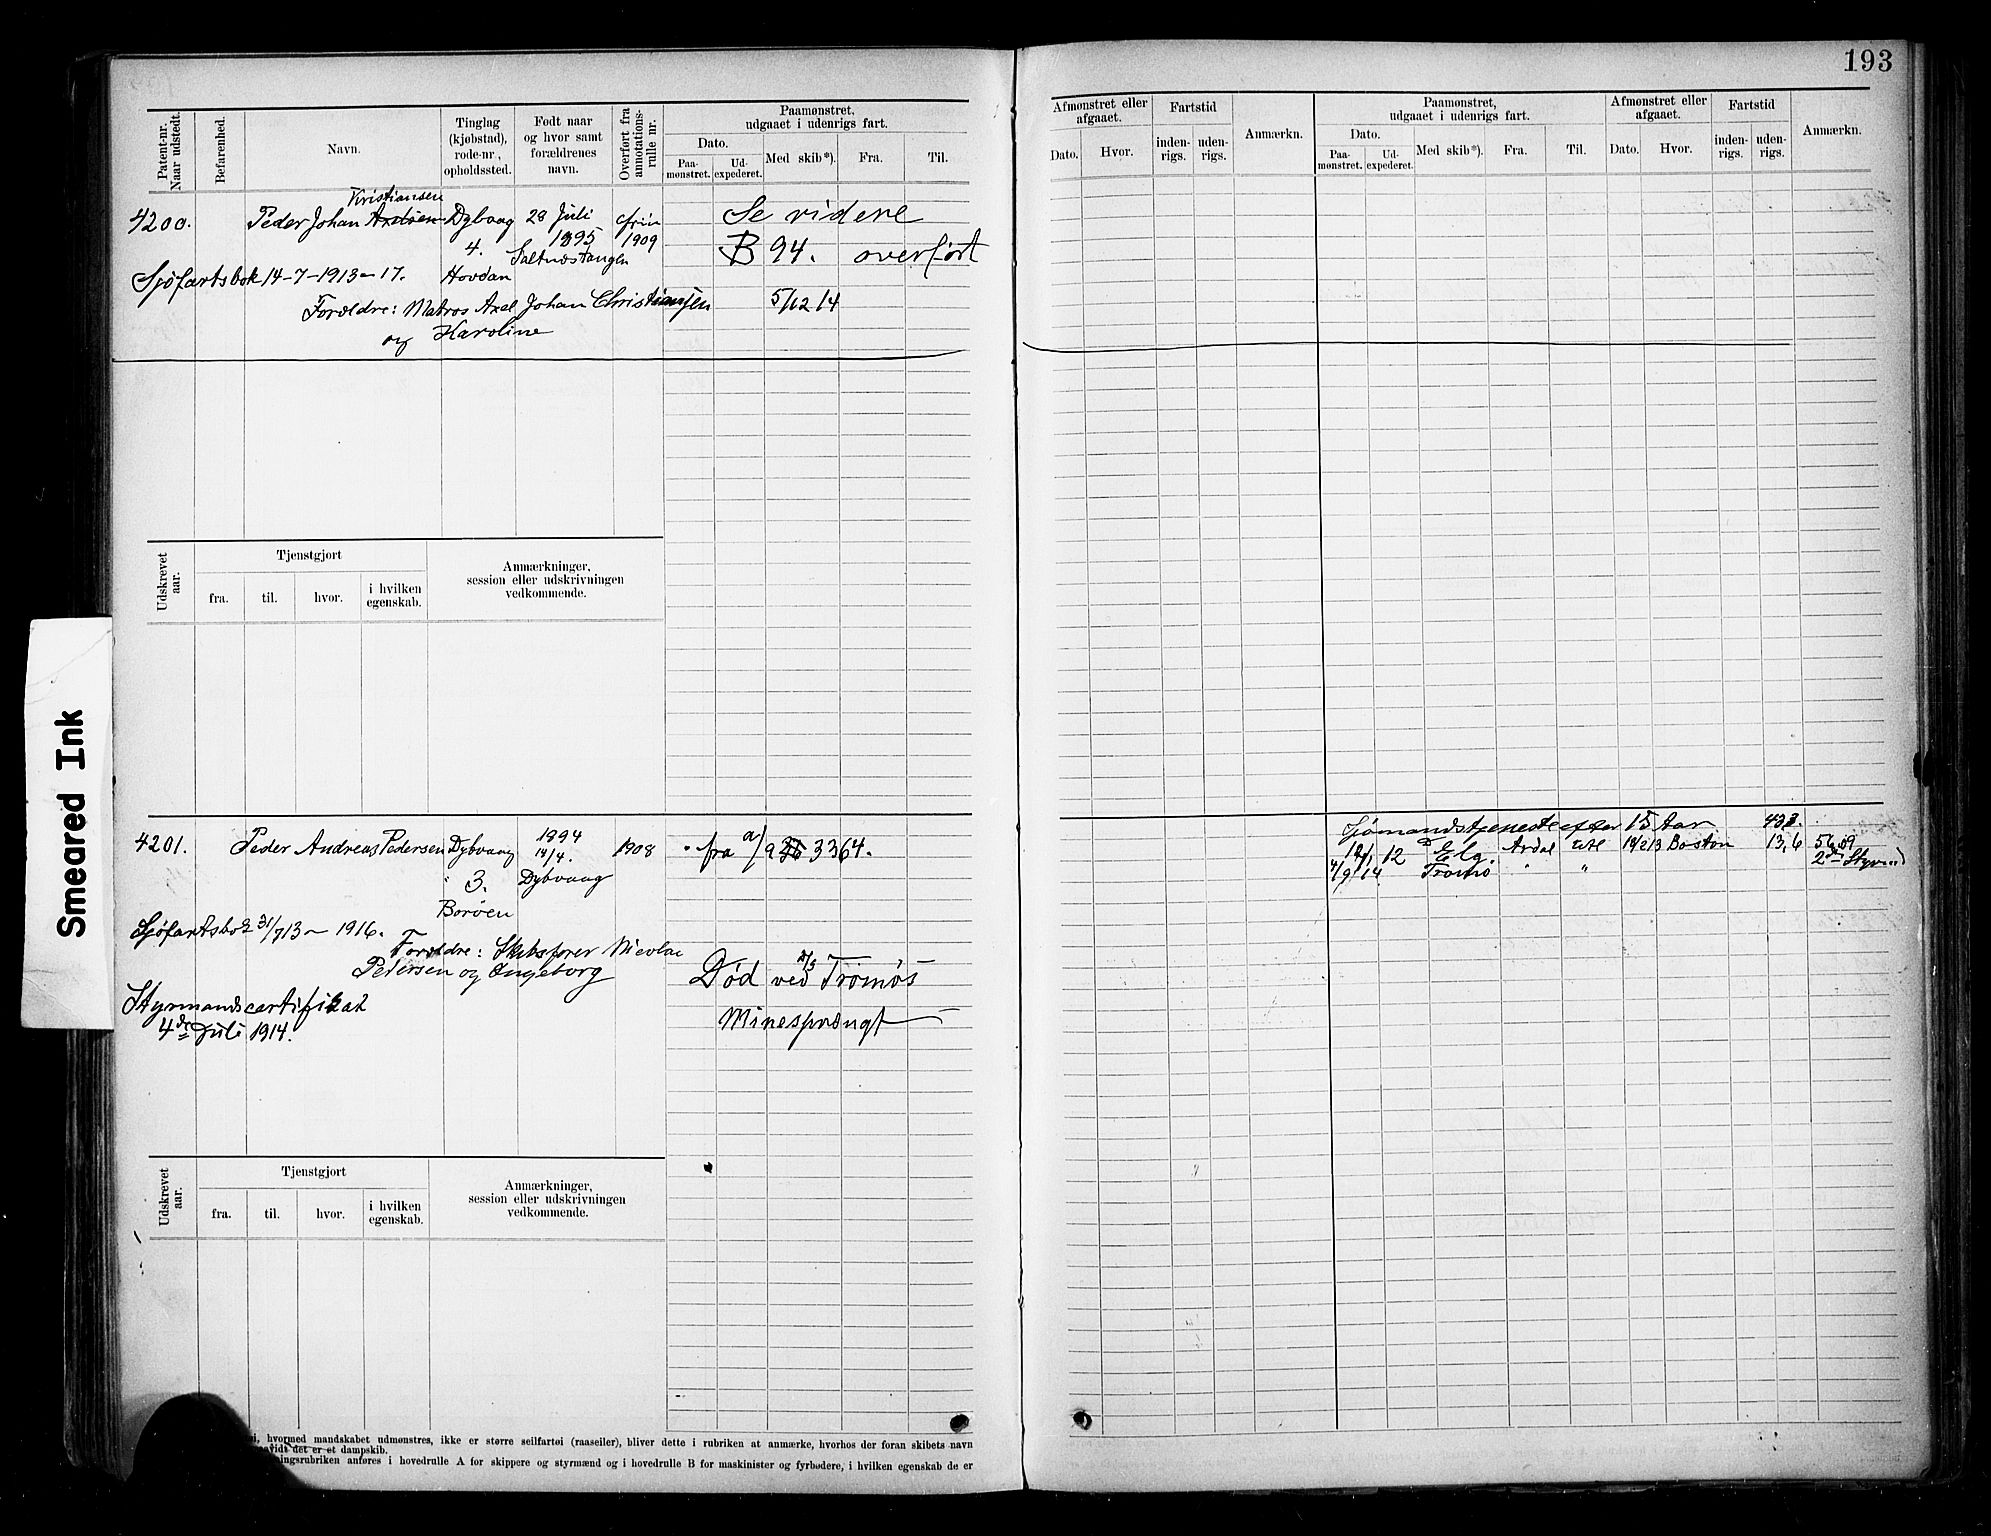 193
Patent-nr. Naar udstedt.
Befarenhed.
Navn.
Tinglag (kjøbstad), rode-nr, opholdssted.
Født naar og hvor samt forældrenes navn.
Overført fra annotations-rulle nr.
Paamønstret, udgaaet i udenrigs fart.
Dato.
Paa-mønstret.
Ud-expederet.
Med skib*).
Fra.
Til.
Kristiansen
4200. Peder Johan Axelsen Dybvaag 28 Juli
1909
4. 1895
Saltnæstangen
Se videre
B 94. overført
Sjøfartsbok 14-7-1913-17. Hovdan
Forældre: Matros Axel Johan Christiansen 5/12 14
og Karoline
Udskrevet aar.
Tjenstgjort
fra.
til.
hvor.
i hvilken egenskab.
Anmærkninger, session eller udskrivningen vedkommende.
4201. Peder Andreas Pedersen Dybvaag 1894 1908 fra a/9 3364.
14/4.
" 3. Dybvaag
Borøen
Sjøfartsbok 31/7 13 - 1916.
Forældre: Skibsfører Nicolai
Pedersen og Ingeborg
Død ved Tromøs
Styrmandscertifikat
Minesprængt
4de Juli 1914.
Udskrevet aar.
Tjenstgjort
fra.
til.
hvor.
i hvilken egenskab.
Anmærkninger, session eller udskrivningen vedkommende.
hvormed mandskabet udmønstres, ikke er større seilfartøi (raaseiler), bliver dette i rubriken at anmærke, hvorhos der foran skibets navn
det er et dampskib.
ingsrubriken anføres i hovedrulle A for skippere og styrmænd og i hovedrulle B for maskinister og fyrbødere, i hvilken egenskab de er
Afmønstret eller afgaaet.
Dato.
Hvor.
Fartstid
inden-rigs.
uden-rigs.
Anmærkn.
Paamønstret, udgaaet i udenrigs fart.
Dato.
Paa-mønstret.
Ud-expederet.
Med skib*).
Fra.
Til.
Afmønstret eller afgaaet.
Dato.
Hvor.
Fartstid
inden-rigs.
uden-rigs.
Anmærkn.
Sjømandstjeneste efter 15 Aar
12 Elg. Ardal Boston 13,6 56,09
/9 14. Tromø " " 2den Styrmd
Smeared Ink